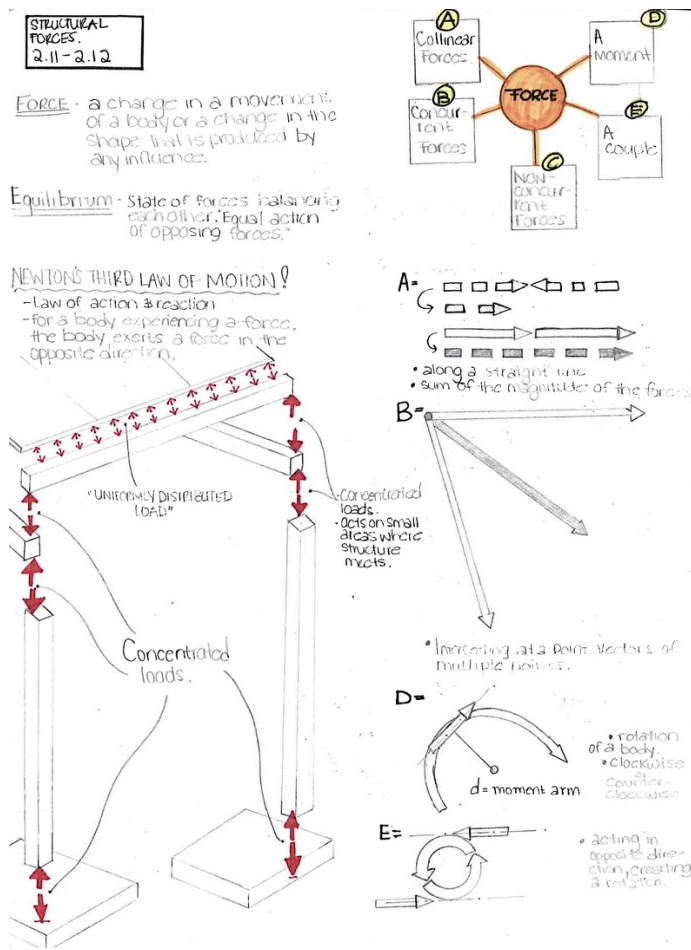 STRUCTURAL
FORCES.
2.11-2.12
FORCE - a change in a movement
of a body or a change in the
shape that is produced by
any influence.
Equilibrium - State of forces balancing
each other. "Equal action
of opposing forces."
NEWTON'S THIRD LAW OF MOTION!
-Law of action & reaction
-for a body experiencing a force,
the body, exerts a force in the
opposite direction.
"UNIFORMLY DISTRIBUTED
LOAD"
•Concentrated
loads.
•acts on small
areas where
structure
meets.
Concentrated
loads.
A
Collinear
Forces
B
Concur-
rent
Forces
FORCE
C
NON-
concur-
rent
Forces
D
A
Moment
E
A
couple
A=
• along a straight line
• sum of the magnitude of the forces
B=
at a point. Vectors of
multiple points.
D=
d= moment arm
• rotation
of a body.
• clockwise
or
counter-
clockwise
E=
• acting in
opposite dire-
ction, creating
a rotation.